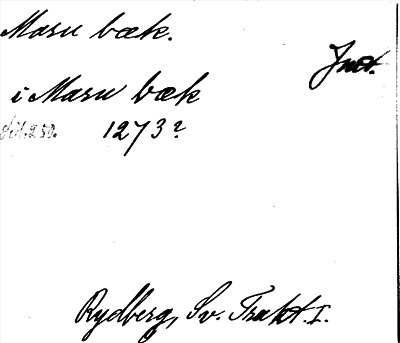 Masu bæk.
Jmt.
i Masu bæk
1273?
Rydberg, Sv. Trakt. I.